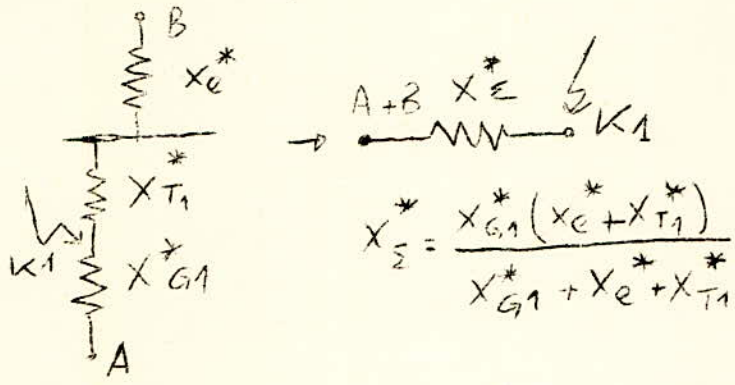 B
Xe*
XT1*
K1
X*G1
A
→ A+B X*Σ K1
X*Σ = X*G1 (Xe* + XT1*) / X*G1 + Xe* + XT1*